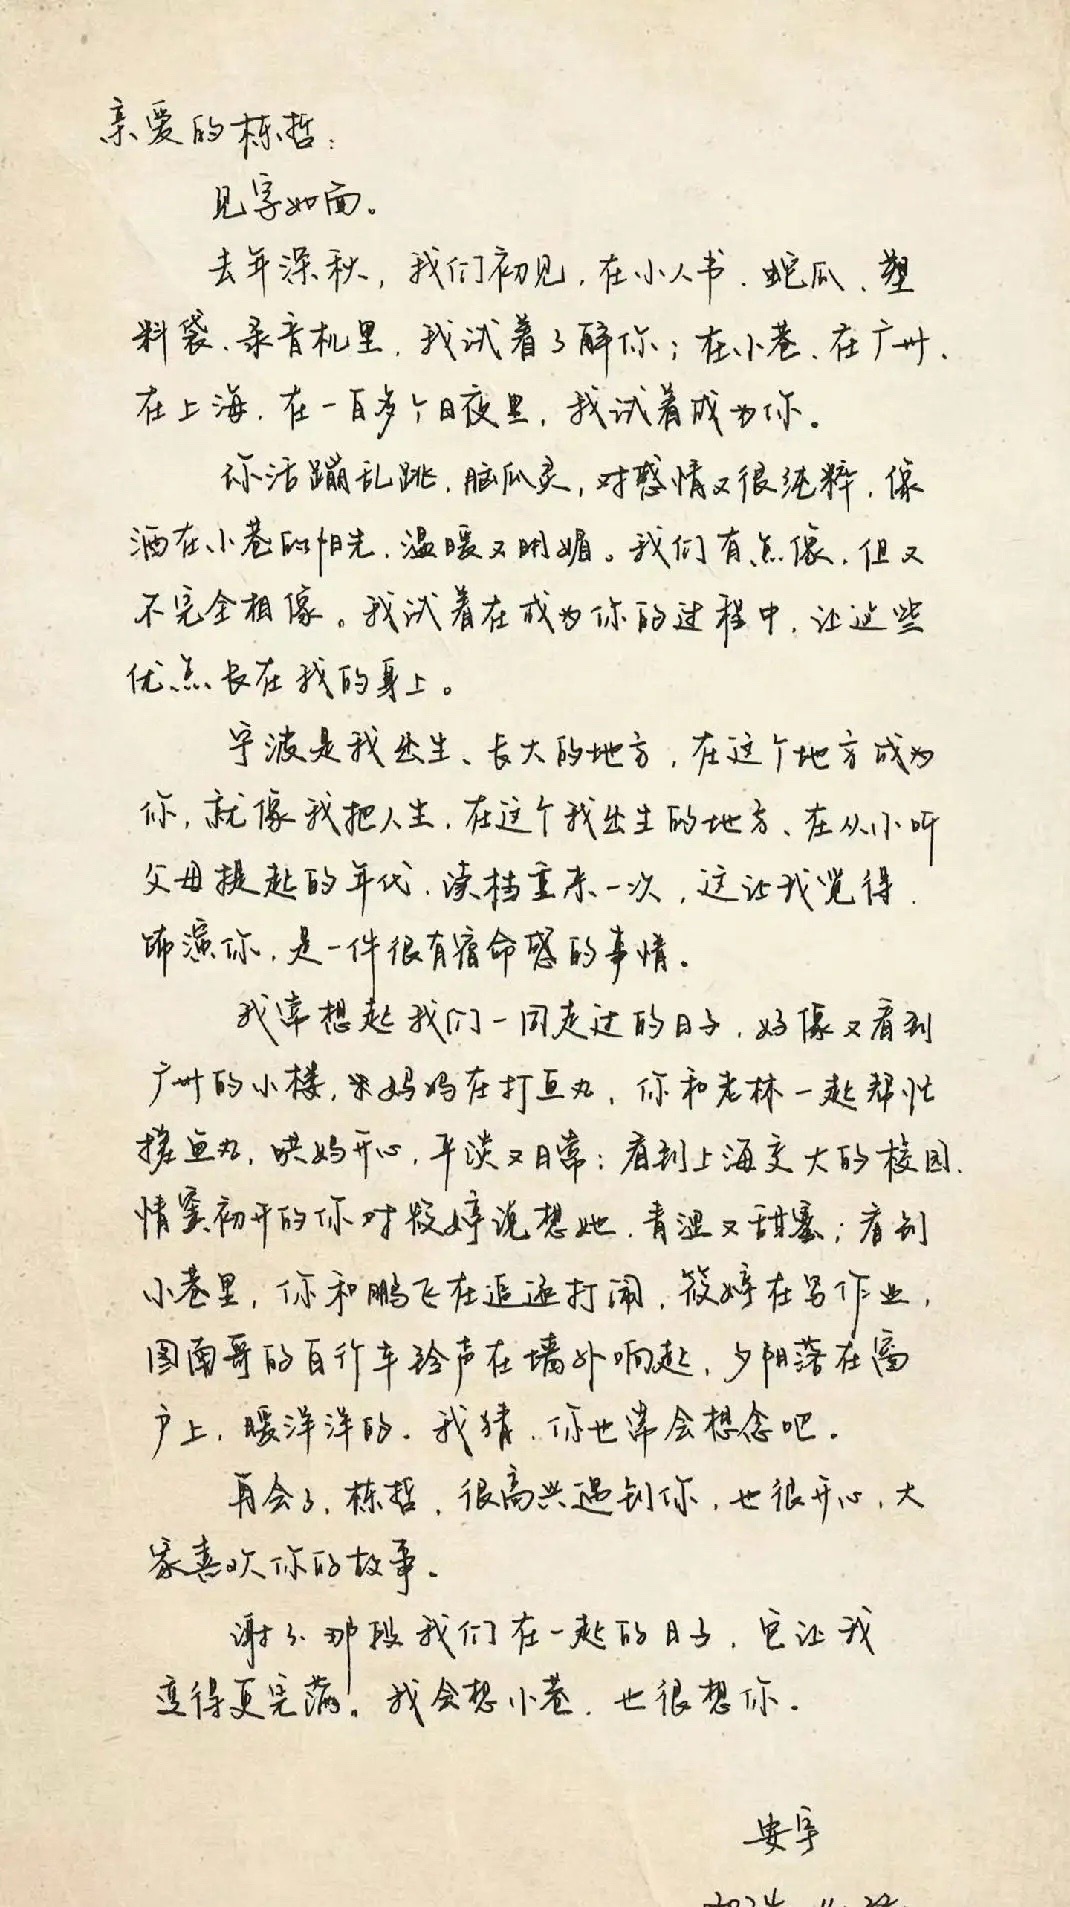 亲爱的栋哲：
见字如面。
去年深秋，我们初见，在小人书、蛇瓜、塑
料袋、录音机里，我试着了解你；在小巷、在广州、
在上海，在一百多个日夜里，我试着成为你。
你活蹦乱跳，脑瓜灵，对感情又很纯粹，像
洒在小巷的阳光，温暖又明媚。我们有点像，但又
不完全相像。我试着在成为你的过程中，让这些
优点长在我的身上。
宁波是我出生、长大的地方，在这个地方成为
你，就像我把人生，在这个我出生的地方、在从小听
父母提起的年代，读档重来一次，这让我觉得，
饰演你，是一件很有宿命感的事情。
我常想起我们一同走过的日子，好像又看到
广州的小楼，宋妈妈在打鱼丸，你和老林一起帮忙
搓鱼丸，哄妈开心，平淡又日常；看到上海交大的校园，
情窦初开的你对筱婷说想她，青涩又甜蜜；看到
小巷里，你和鹏飞在追逐打闹，筱婷在写作业，
图南哥的自行车铃声在墙外响起，夕阳落在窗
户上，暖洋洋的。我猜，你也常会想念吧。
再会了，栋哲，很高兴遇到你，也很开心，大
家喜欢你的故事。
谢了，那段我们在一起的日子，它让我
变得更完满。我会想小巷，也很想你。
安宇